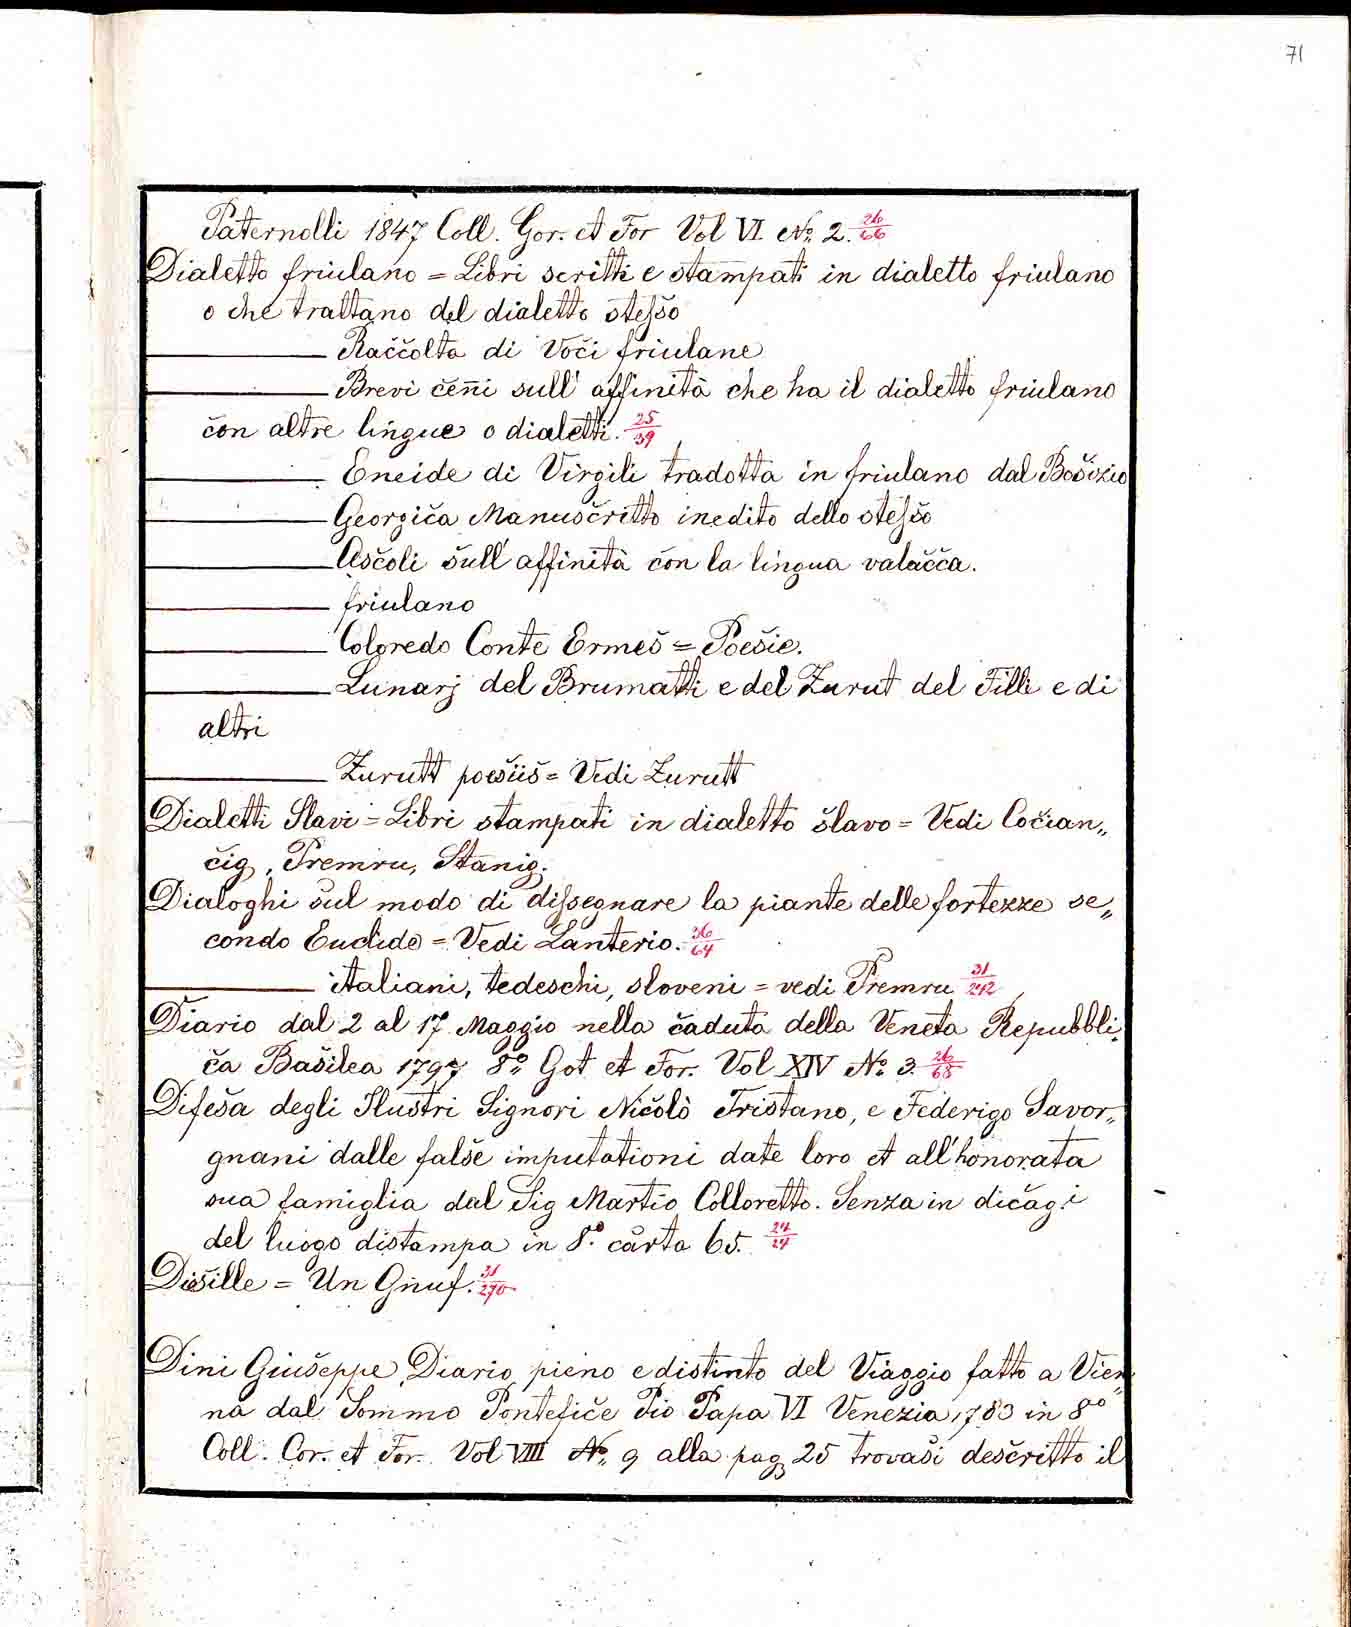 71
Paternolli 1847 Coll. Gor. et For Vol VI. No. 2. 26/66
Dialetto friulano = Libri scritti e stampati in dialetto friulano
o che trattano del dialetto stesšo
Raččolta di Voči friulane
Brevi čenni sull' affinità che ha il dialetto friulano
čon altre lingue o dialetti. 25/39
Eneide di Virgili tradotta in friulano dal Bošizio
Georgiča Manusčritto inedito dello stesšo
Asčoli šull' affinità čon la lingua valačča.
friulano
Coloredo Conte Ermeš = Poešie.
Lunarj del Brumatti e del Zurut del Filli e di
altri
Zurutt poešiiš = Vedi Zurutt
Dialetti Slavi = Libri stampati in dialetto šlavo = Vedi Cočian„
čig, Premru, Stanig.
Dialoghi šul modo di dissegnare la piante delle fortezze se„
condo Euclide = Vedi Lanterio. 26/64
italiani, tedeschi, sloveni = vedi Premru 31/212
Diario dal 2 al 17 Maggio nella čaduta della Veneta Repubbli„
ča Bašilea 1797 8º Got et For. Vol XIV No. 3. 26/68
Difeša degli Ilustri Signori Ničolò Tristano, e Federigo Savor„
gnani dalle falše imputationi date loro et all'honorata
sua famiglia dal Sig Martio Colloretto. Senza in dičag.i
del luogo distampa in 8.º carta 65. 24/24
Diešille = Un Gnuf. 31/270
Dini Giušeppe, Diario pieno e distinto del Viaggio fatto a Vien„
na dal Sommo Pontefiče Pio Papa VI Venezia 1783 in 8º
Coll. Cor. et For. Vol VIII No. 9 alla pag 25 trovaši desčritto il